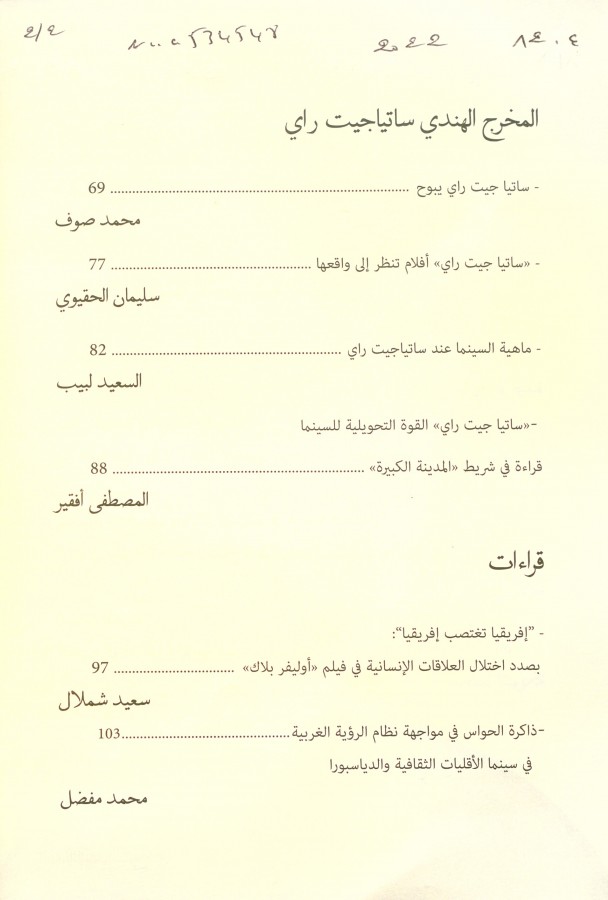 2/2 2022
المخرج الهندي ساتياجيت راي
- ساتيا جيت راي يبوح ........ 69
محمد صوف
- «ساتيا جيت راي» أفلام تنظر إلى واقعها ........ 77
سليمان الحقيوي
- ماهية السينما عند ساتياجيت راي ........ 82
السعيد لبيب
-«ساتيا جيت راي» القوة التحويلية للسينما
قراءة في شريط «المدينة الكبيرة» ........ 88
المصطفى أفقير
قراءات
- ”إفريقيا تغتصب إفريقيا“:
بصدد اختلال العلاقات الإنسانية في فيلم «أوليفر بلاك» ........ 97
سعيد شملال
-ذاكرة الحواس في مواجهة نظام الرؤية الغربية........103
في سينما الأقليات الثقافية والدياسبورا
محمد مفضل